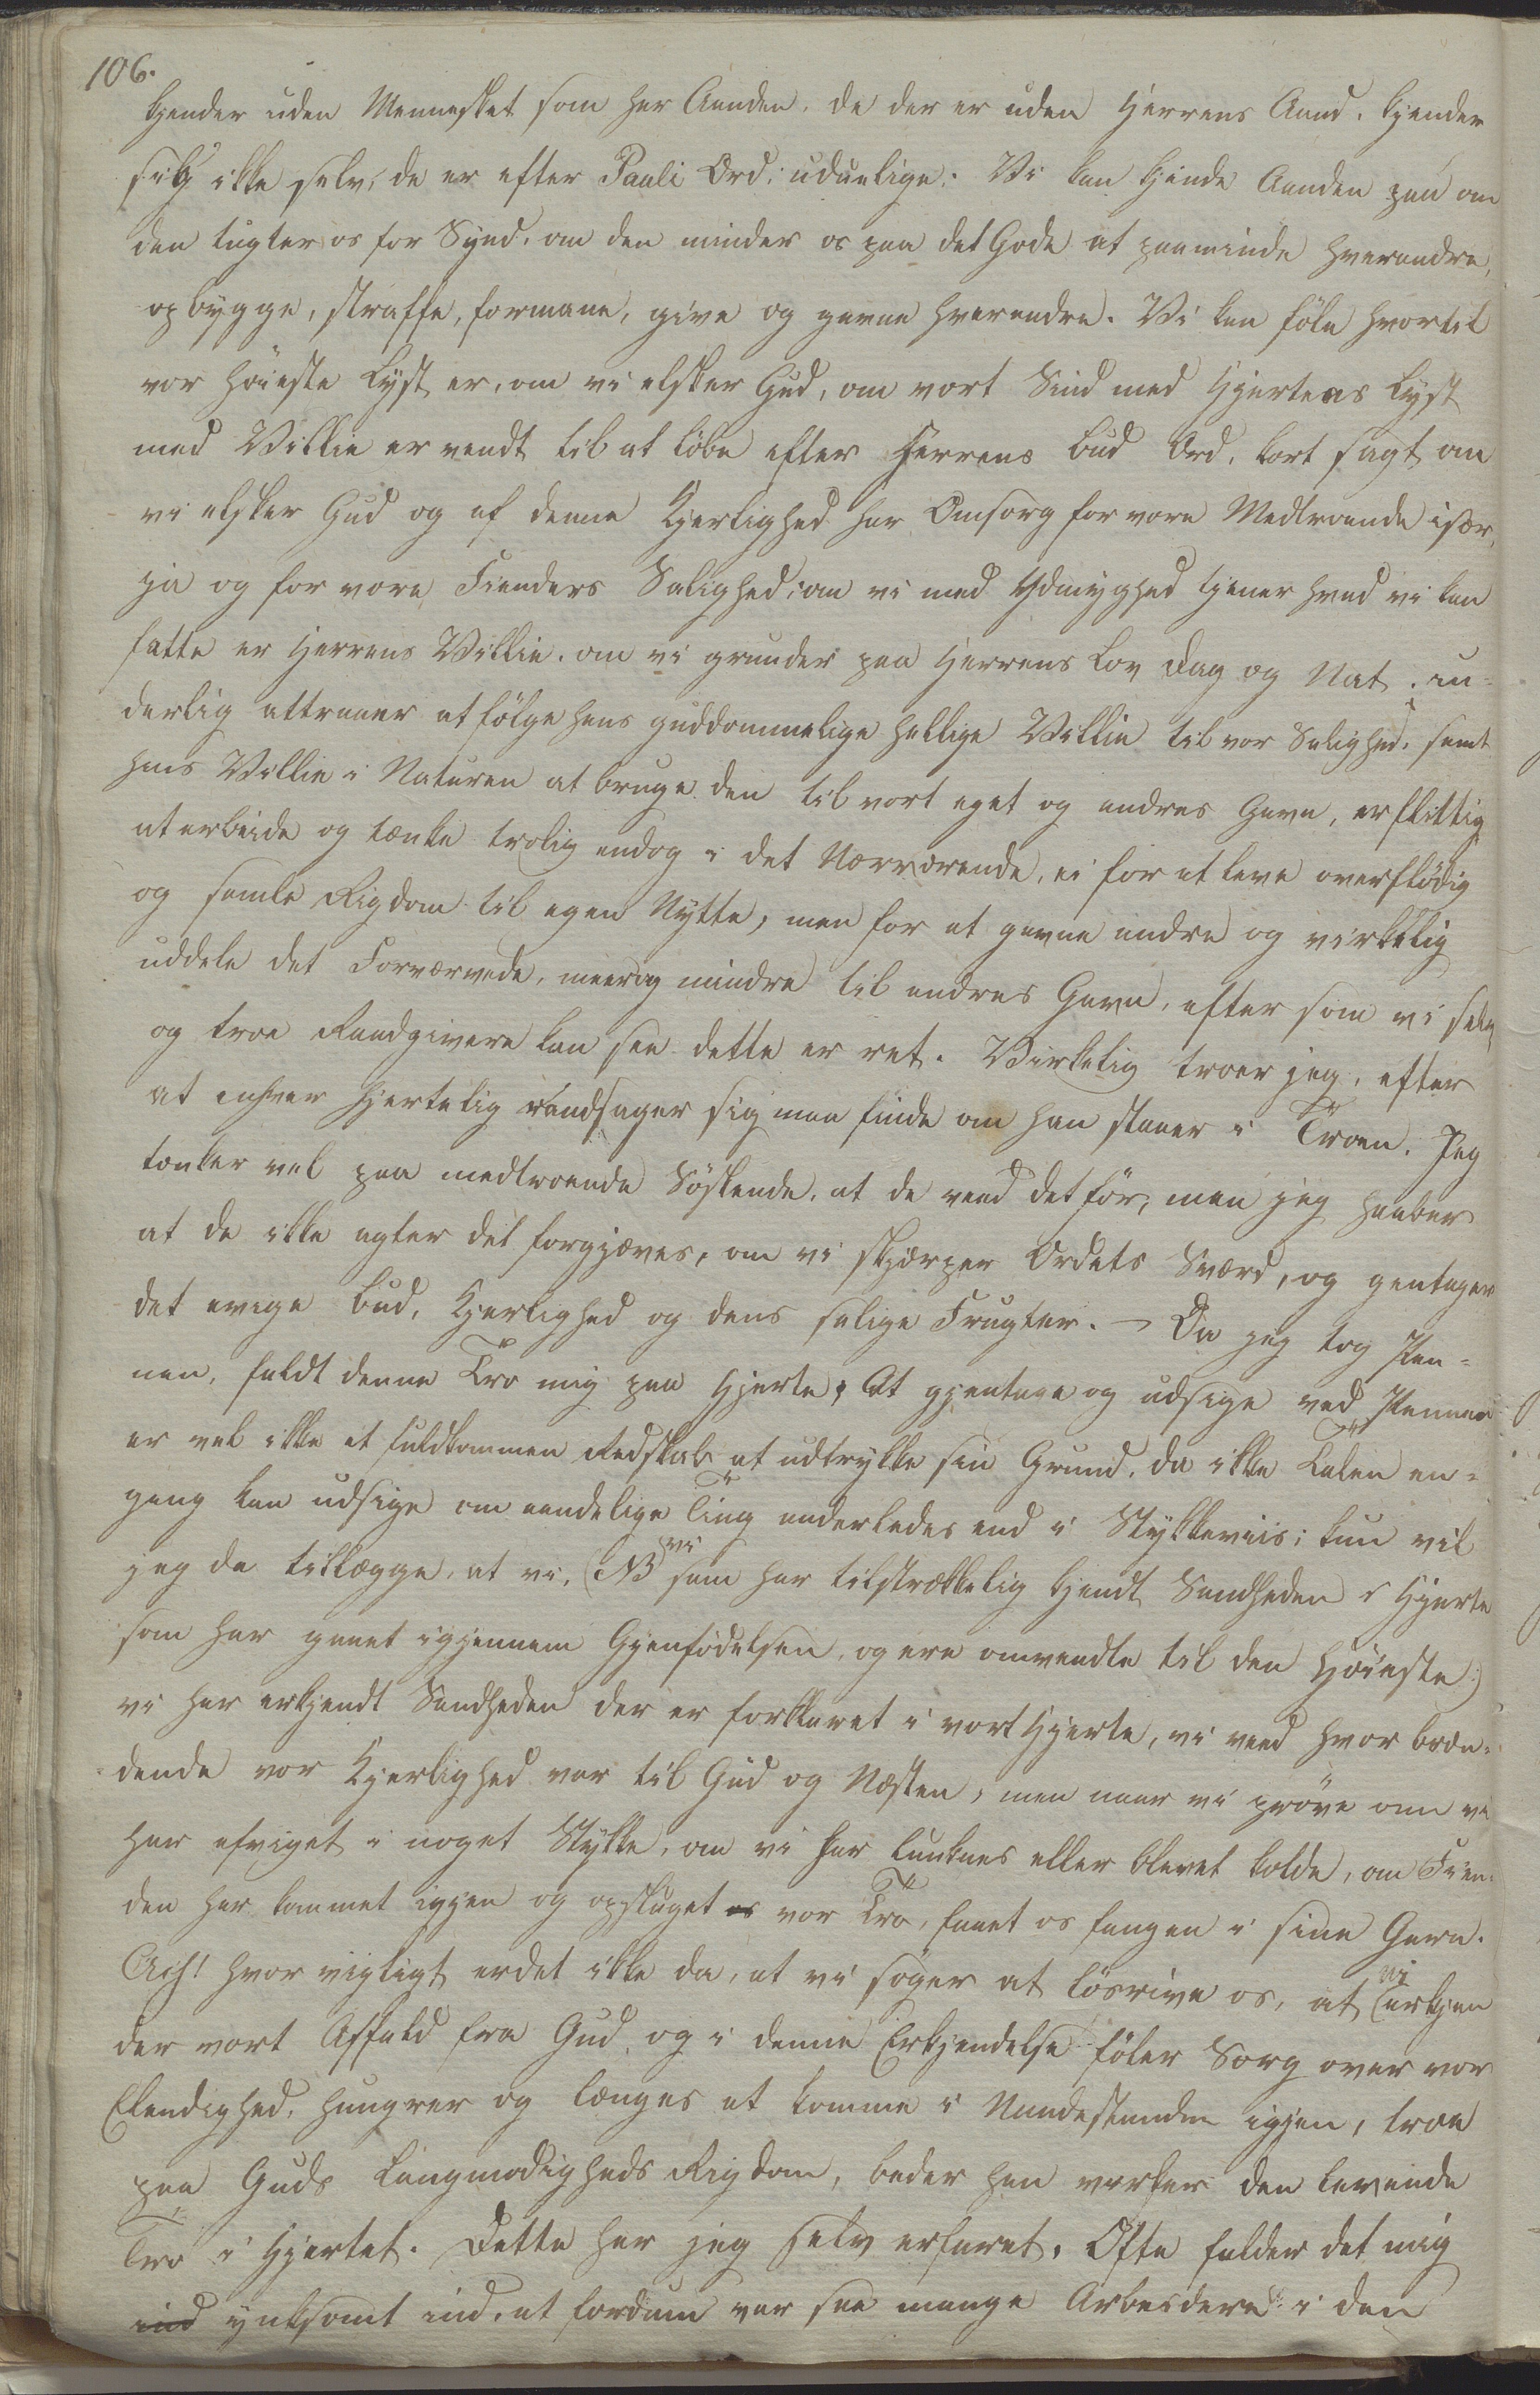 106.
kjender uden Mennesket som har Aanden. de der er uden Herrens Aand. kjender
sig ikke selv, de er efter Pauli Ord: uduelige: Vi kan kjende Aanden paa om
den tugter os for Synd. om den minder os paa det Gode at paaminde hverandre,
opbygge, straffe, formane, give og gavne hverandre. Vi kan föle hvortil
vor höieste Lyst er, om vi elsker Gud, om vort Sind med Hjertens Lyst
med Villie er vendt til at löbe efter Herrens bud Ord, kort sagt om
vi elsker Gud og af denne Kjerlighed har Omsorg for vore Medtroende især,
ja og for vore Fienders Salighed; om vi med Ydmyghed tjener hvad vi kan
fatte er Herrens Villie. om vi grunder paa Herrens Lov Dag og Nat. in-
derlig attraaer at fölge hans guddommelige hellige Villie til vor Salighed. samt
hans Villie i Naturen at bruge den til vort eget og andres Gavn, er flittig
at arbeide og tænke trolig endog i det Nærværende, ei for at leve overflödig
og samle Rigdom til egen Nytte, men for at gavne andre og virkelig
uddele det Forværvede, meer og mindre til andres Gavn, efter som vi selv
og troe Raadgivere kan see dette er ret. Virkelig troer jeg, efter
at enhver hjertelig randsager sig maa finde om han staaer i Troen. Jeg
tænker vel paa medtroende Söskende, at de veed det för, men jeg haaber
at de ikke agter det forgjæves, om vi skjærper Ordets Sværd, og gentager
det evige bud, Kjerlighed og dens salige Frugter. – Da jeg tog Pen-
nen, faldt denne Tro mig paa Hjerte; At gjentage og udsige ved Pennen
er vel ikke et fuldkommen Redskab at udtrykke sin Grund, da ikke Talen en-
gang kan udsige om aandelige Ting anderledes end i Stykkeviis; kun vil
jeg da tillægge, at vi, (NB vi som har tilstrækkelig kjendt Sandheden i Hjerte
som har gaaet igjennem Gjenfödelsen, og ere omvendte til den Höieste:)
vi har erkjendt Sandheden der er forklaret i vort Hjerte, vi veed hvor bræn-
dende vor Kjerlighed var til Gud og Næsten, men naar vi pröve om vi
har afviget i noget Stykke, om vi har lunknes eller blevet kolde, om Fien-
den har kommet igjen og opsluget os vor Tro, faaet os fangen i sine Garn.
Ach! hvor vigtigt er det ikke da, at vi söger at lösrive os, at vi erkjen
der vort Affald fra Gud, og i denne Erkjendelse föler Sorg over vor
Elendighed, hungrer og længes at komme i Naadestanden igjen, troe
paa Guds Langmodigheds Rigdom, beder han virker den levende
Tro i Hjertet. Dette har jeg selv erfaret. Ofte falder det mig
ind ynksomt ind, at fordum var saa mange Arbeidere i den